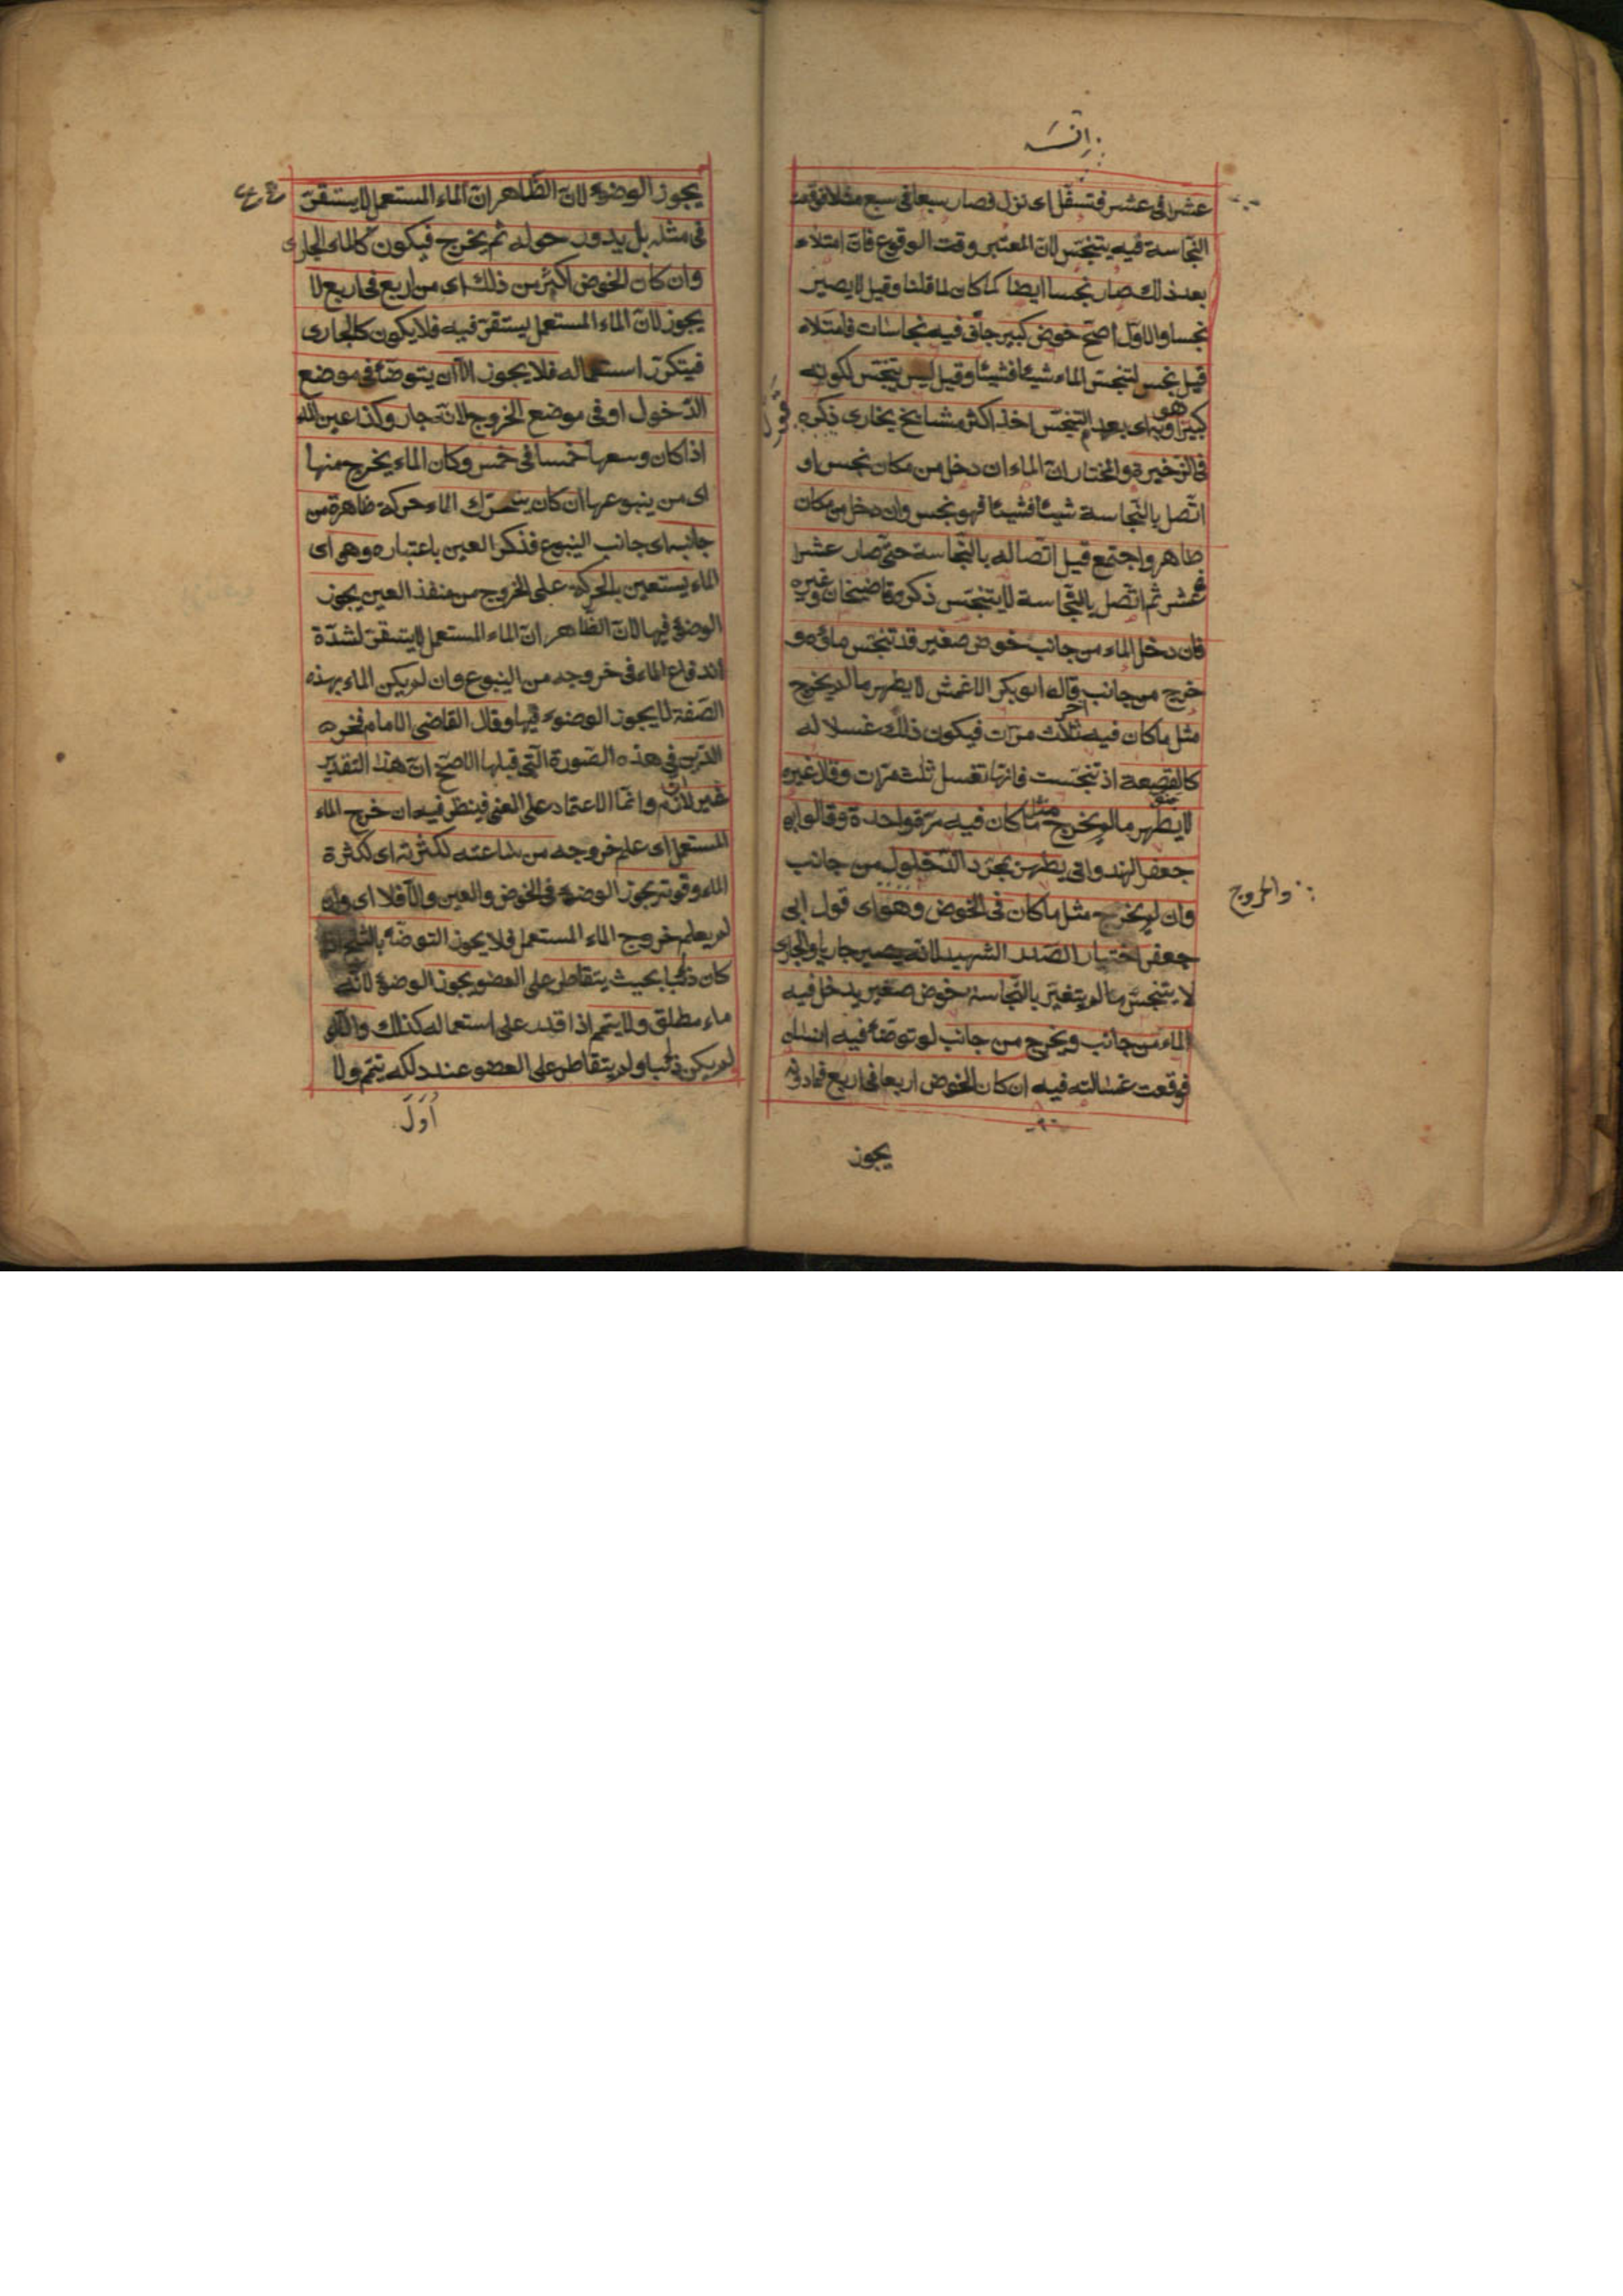 عشرا فى عشر فتسفّل اى نزل فصار سبعا فى سبع مثلا فوقعت
النّجاسة فيه يتنجّس لانّ المعتبر وقت الوقوع فانّ امتلاء
بعد ذلك صار نجسا ايضا كما كان لما قلنا وقيل لا يصير
نجسا والاوّل اصحّ حوض كبير جافّ فيه نجاسات فامتلاء
قيل نجس لتنجّس الماء شيئا فشيئا وقيل ليس بنجس لكونه
كبيرا وبه اى بعدم التنجّس اخذ اكثر مشايخ بخارى ذكره
فى الذخيرة والمختار انّ الماء ان دخل من مكان نجس او
اتّصل بالنّجاسة شيئا فشيئا فهو نجس وان دخل من مكان
طاهر واجتمع قبل اتّصاله بالنّجاسة حتى صار عشرا
فى عشر ثم اتّصل بالنّجاسة لا يتنجّس ذكره قاضيخان وغيره
فان دخل الماء من جانب حوض صغير قد تنجّس ماؤه و
خرج من جانب آخر قال ابو بكر الاعمش لا يطهر ما لم يخرج
مثل ما كان فيه ثلاث مرّات فيكون ذلك غسلا له
كالقصعة اذ تنجّست فانّها تغسل ثلث مرّات وقال غيره
لا يطهر ما لم يخرج منه مثل ما كان فيه مرّة واحدة وقال ابو
جعفر الهندوانى يطهر بمجرّد الدّخول من جانب
وان لم يخرج مثل ما كان فى الحوض وهو اى قول ابى
جعفر اختيار الصّدر الشهيد لانّه يصير جاريا والجارى
لا يتنجّس ما لم يتغيّر بالنّجاسة حوض صغير يدخل فيه
الماء من جانب ويخرج من جانب لو توضّأ فيه انسان
فوقعت غسالته فيه ان كان الحوض اربعا فى اربع فما دونه
والخروج
يجوز
يجوز الوضوء لانّ الظّاهر انّ الماء المستعمل لا يستقرّ
فى مثله بل يدور حوله ثم يخرج فيكون كالماء الجارى
وان كان الحوض اكثر من ذلك اى من اربع فى اربع لا
يجوز لانّ الماء المستعمل يستقرّ فيه فلا يكون كالجارى
فيتكرّر استعماله فلا يجوز الّا ان يتوضّأ فى موضع
الدّخول او فى موضع الخروج لانّه جار وكذا عين الماء
اذا كان وسعها خمسا فى خمس وكان الماء يخرج منها
اى من ينبوعها ان كان يتحرّك الماء حركة ظاهرة من
جانبه اى جانب الينبوع فذكر العين باعتباره وهو اى
الماء يستعين بالحركة على الخروج من منفذ العين يجوز
الوضوء فيها لانّ الظّاهر انّ الماء المستعمل لا يستقرّ لشدّة
اندفاع الماء فى خروجه من الينبوع وان لم يكن الماء بهذه
الصّفة لا يجوز الوضوء فيها وقال القاضى الامام فخر
الدّين فى هذه الصّورة الّتى قبلها الاصحّ انّ هذا التقدير
غير لازم وانّما الاعتماد على المعنى فينظر فيه ان خرج الماء
المستعمل اى علم خروجه من ساعته لكثرته اى لكثرة
الماء وقوّته يجوز الوضوء فى الحوض والعين والّا فلا اى وان
لم يعلم خروج الماء المستعمل فلا يجوز التوضّؤ بالثلج ان
كان ذائبا بحيث يتقاطر على العضو يجوز الوضوء لانّه
ماء مطلق ولا يتيمّم اذا قدر على استعماله كذلك وان
لم يكن ذائبا ولم يتقاطر على العضو عند دلكه يتيمّم ولا